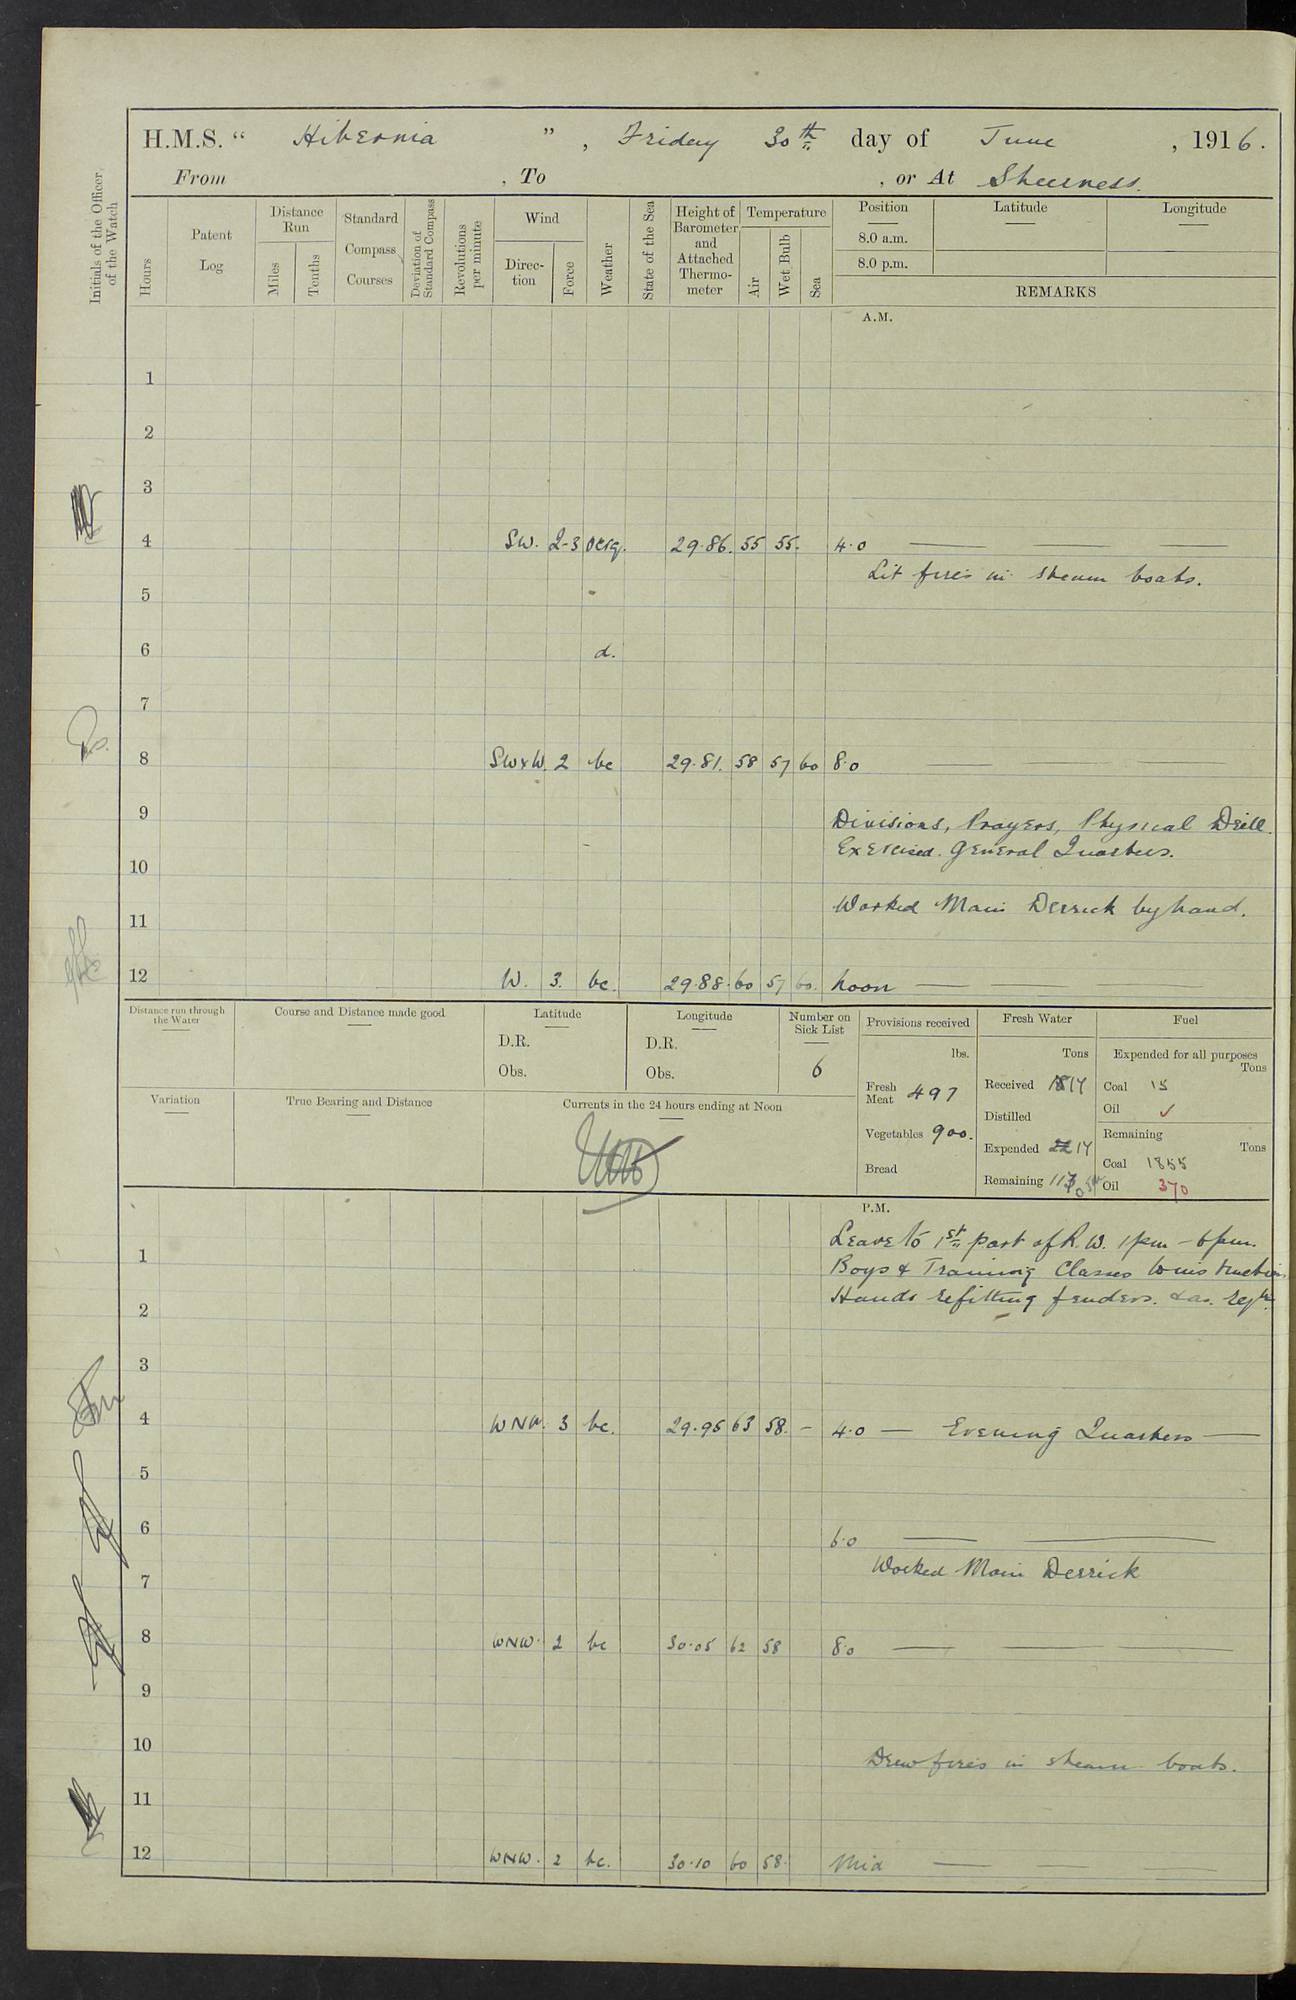 H.M.S. “ Hibernia ” , Friday 30th day of June , 1916.
From , To , or At Sheerness.
Initials of the Officer of the Watch
Hours
Patent Log
Distance Run
Miles
Tenths
Standard Compass Courses
Deviation of Standard Compass
Revolutions per minute
Wind
Direction
Force
Weather
State of the Sea
Height of Barometer and Attached Thermometer
Temperature
Air
Wet Bulb
Sea
Position Latitude Longitude
8.0 a.m.
8.0 p.m.
REMARKS
A.M.
1
2
3
4 SW. 2-3 29.86. 55 55. 4.0
Lit fires in steam boats.
5
6 d.
7
8 SWxW. 2 bc 29.81. 58 57 60 8.0
9 Divisions, Prayers, Physical Drill.
Exercised General Quarters.
10
Worked Main Derrick by hand.
11
12 W. 3. bc. 29.88. 60 57 60. Noon
Distance run through the Water
Course and Distance made good
Latitude
D.R.
Obs.
Longitude
D.R.
Obs.
Number on Sick List
6
Variation
True Bearing and Distance
Currents in the 24 hours ending at Noon
Provisions received
lbs.
Fresh Meat 497
Vegetables 900.
Bread
Fresh Water
Tons
Received
Distilled
Expended
Remaining
Fuel
Expended for all purposes
Tons
Coal 15
Oil ✓
Remaining
Tons
Coal 1855
Oil 370
P.M.
Leave to 1st part of R.W. 1pm - 6pm.
1 Boys & Training Classes to instruction
2 Hands refitting fenders. & as. reqte.
3
4 WNW. 3 bc. 29.95 63 58. - 4.0 — Evening Quarters —
5
6 6.0
Worked Main Derrick
7
8 WNW. 2 bc 30.05 62 58 8.0
9
10 Drew fires in steam boats.
11
12 WNW. 2 bc. 30.10 60 58. Mid